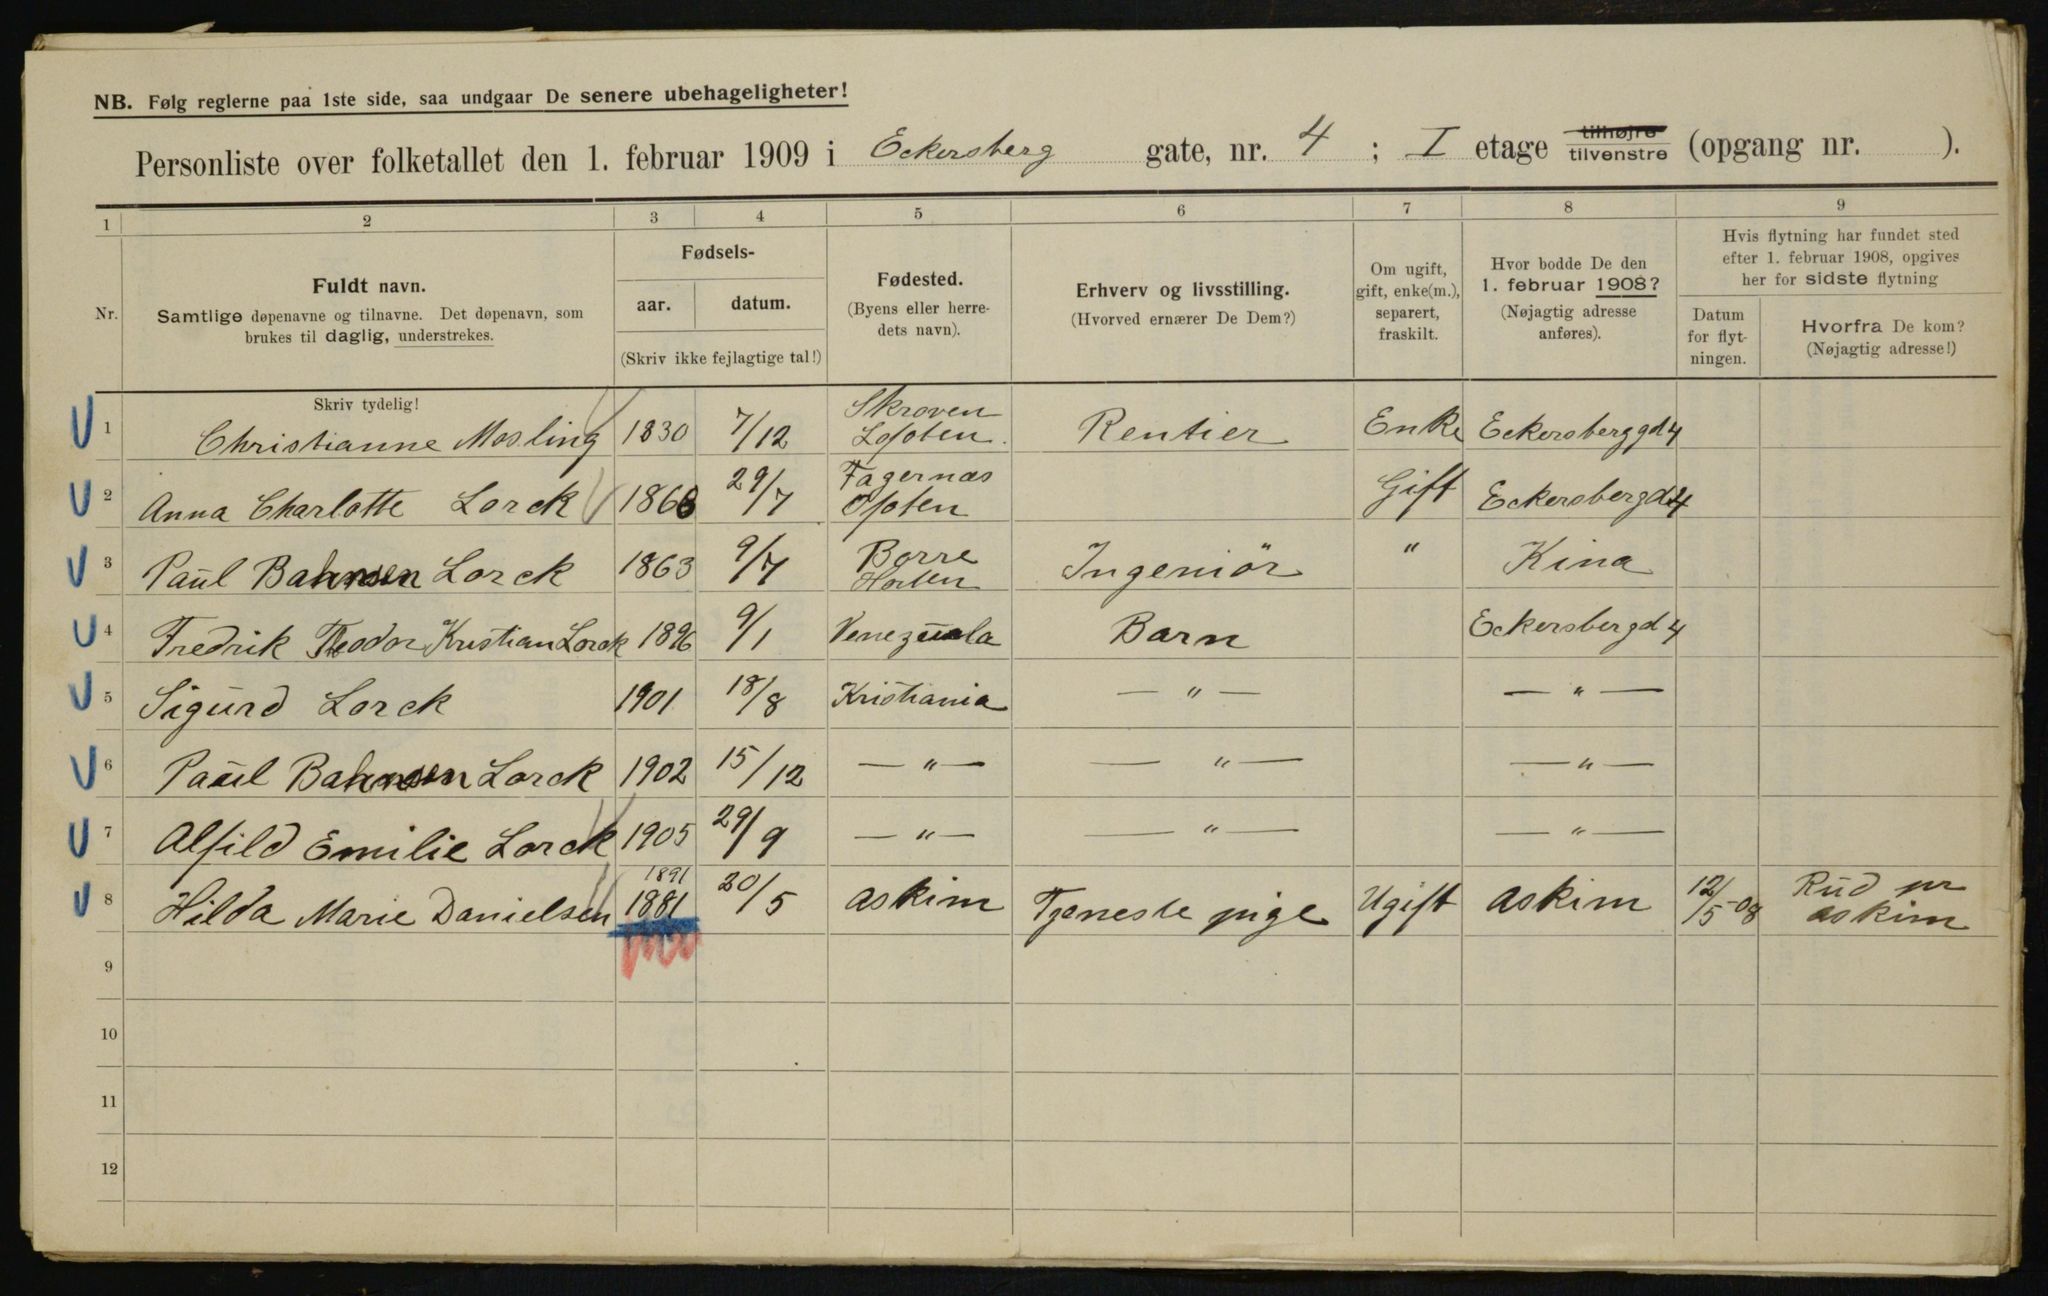 NB. Følg reglerne paa 1ste side, saa undgaar De senere ubehageligheter!
Personliste over folketallet den 1. februar 1909 i Eckersberg gate, nr. 4 ; I etage tilhøjre tilvenstre (opgang nr. ).
1 2 3 4 5 6 7 8 9
Nr.
Fuldt navn.
Samtlige døpenavne og tilnavne. Det døpenavn, som
brukes til daglig, understrekes.
Fødsels-
aar. datum.
(Skriv ikke fejlagtige tal!)
Fødested.
(Byens eller herre-
dets navn).
Erhverv og livsstilling.
(Hvorved ernærer De Dem?)
Om ugift,
gift, enke(m.),
separert,
fraskilt.
Hvor bodde De den
1. februar 1908?
(Nøjagtig adresse
anføres).
Hvis flytning har fundet sted
efter 1. februar 1908, opgives
her for sidste flytning
Datum
for flyt-
ningen.
Hvorfra De kom?
(Nøjagtig adresse!)
Skriv tydelig!
1 Christianne Mosling 1830 7/12 Skroven Lofoten. Rentier Enke Eckersberggd 4
2 Anna Charlotte Lorck 1868 29/7 Fagernæs Ofoten Gift Eckersbergd 4
3 Paul Bahnsen Lorck 1863 9/7 Borre Horten Ingeniör " Kina
4 Fredrik Teodor Kristian Lorck 1896 9/1 Venezuela Barn Eckersbergd 4
5 Sigurd Lorck 1901 18/8 Kristiania — " — — " —
6 Paul Bahnsen Lorck 1902 15/12 — " — — " — — " —
7 Alfild Emilie Lorck 1905 29/9 — " — — " — — " —
1891
8 Hilda Marie Danielsen 1881 20/5 Askim Tjeneste pige Ugift Askim 12/5-08 Rud pr Askim
9
10
11
12